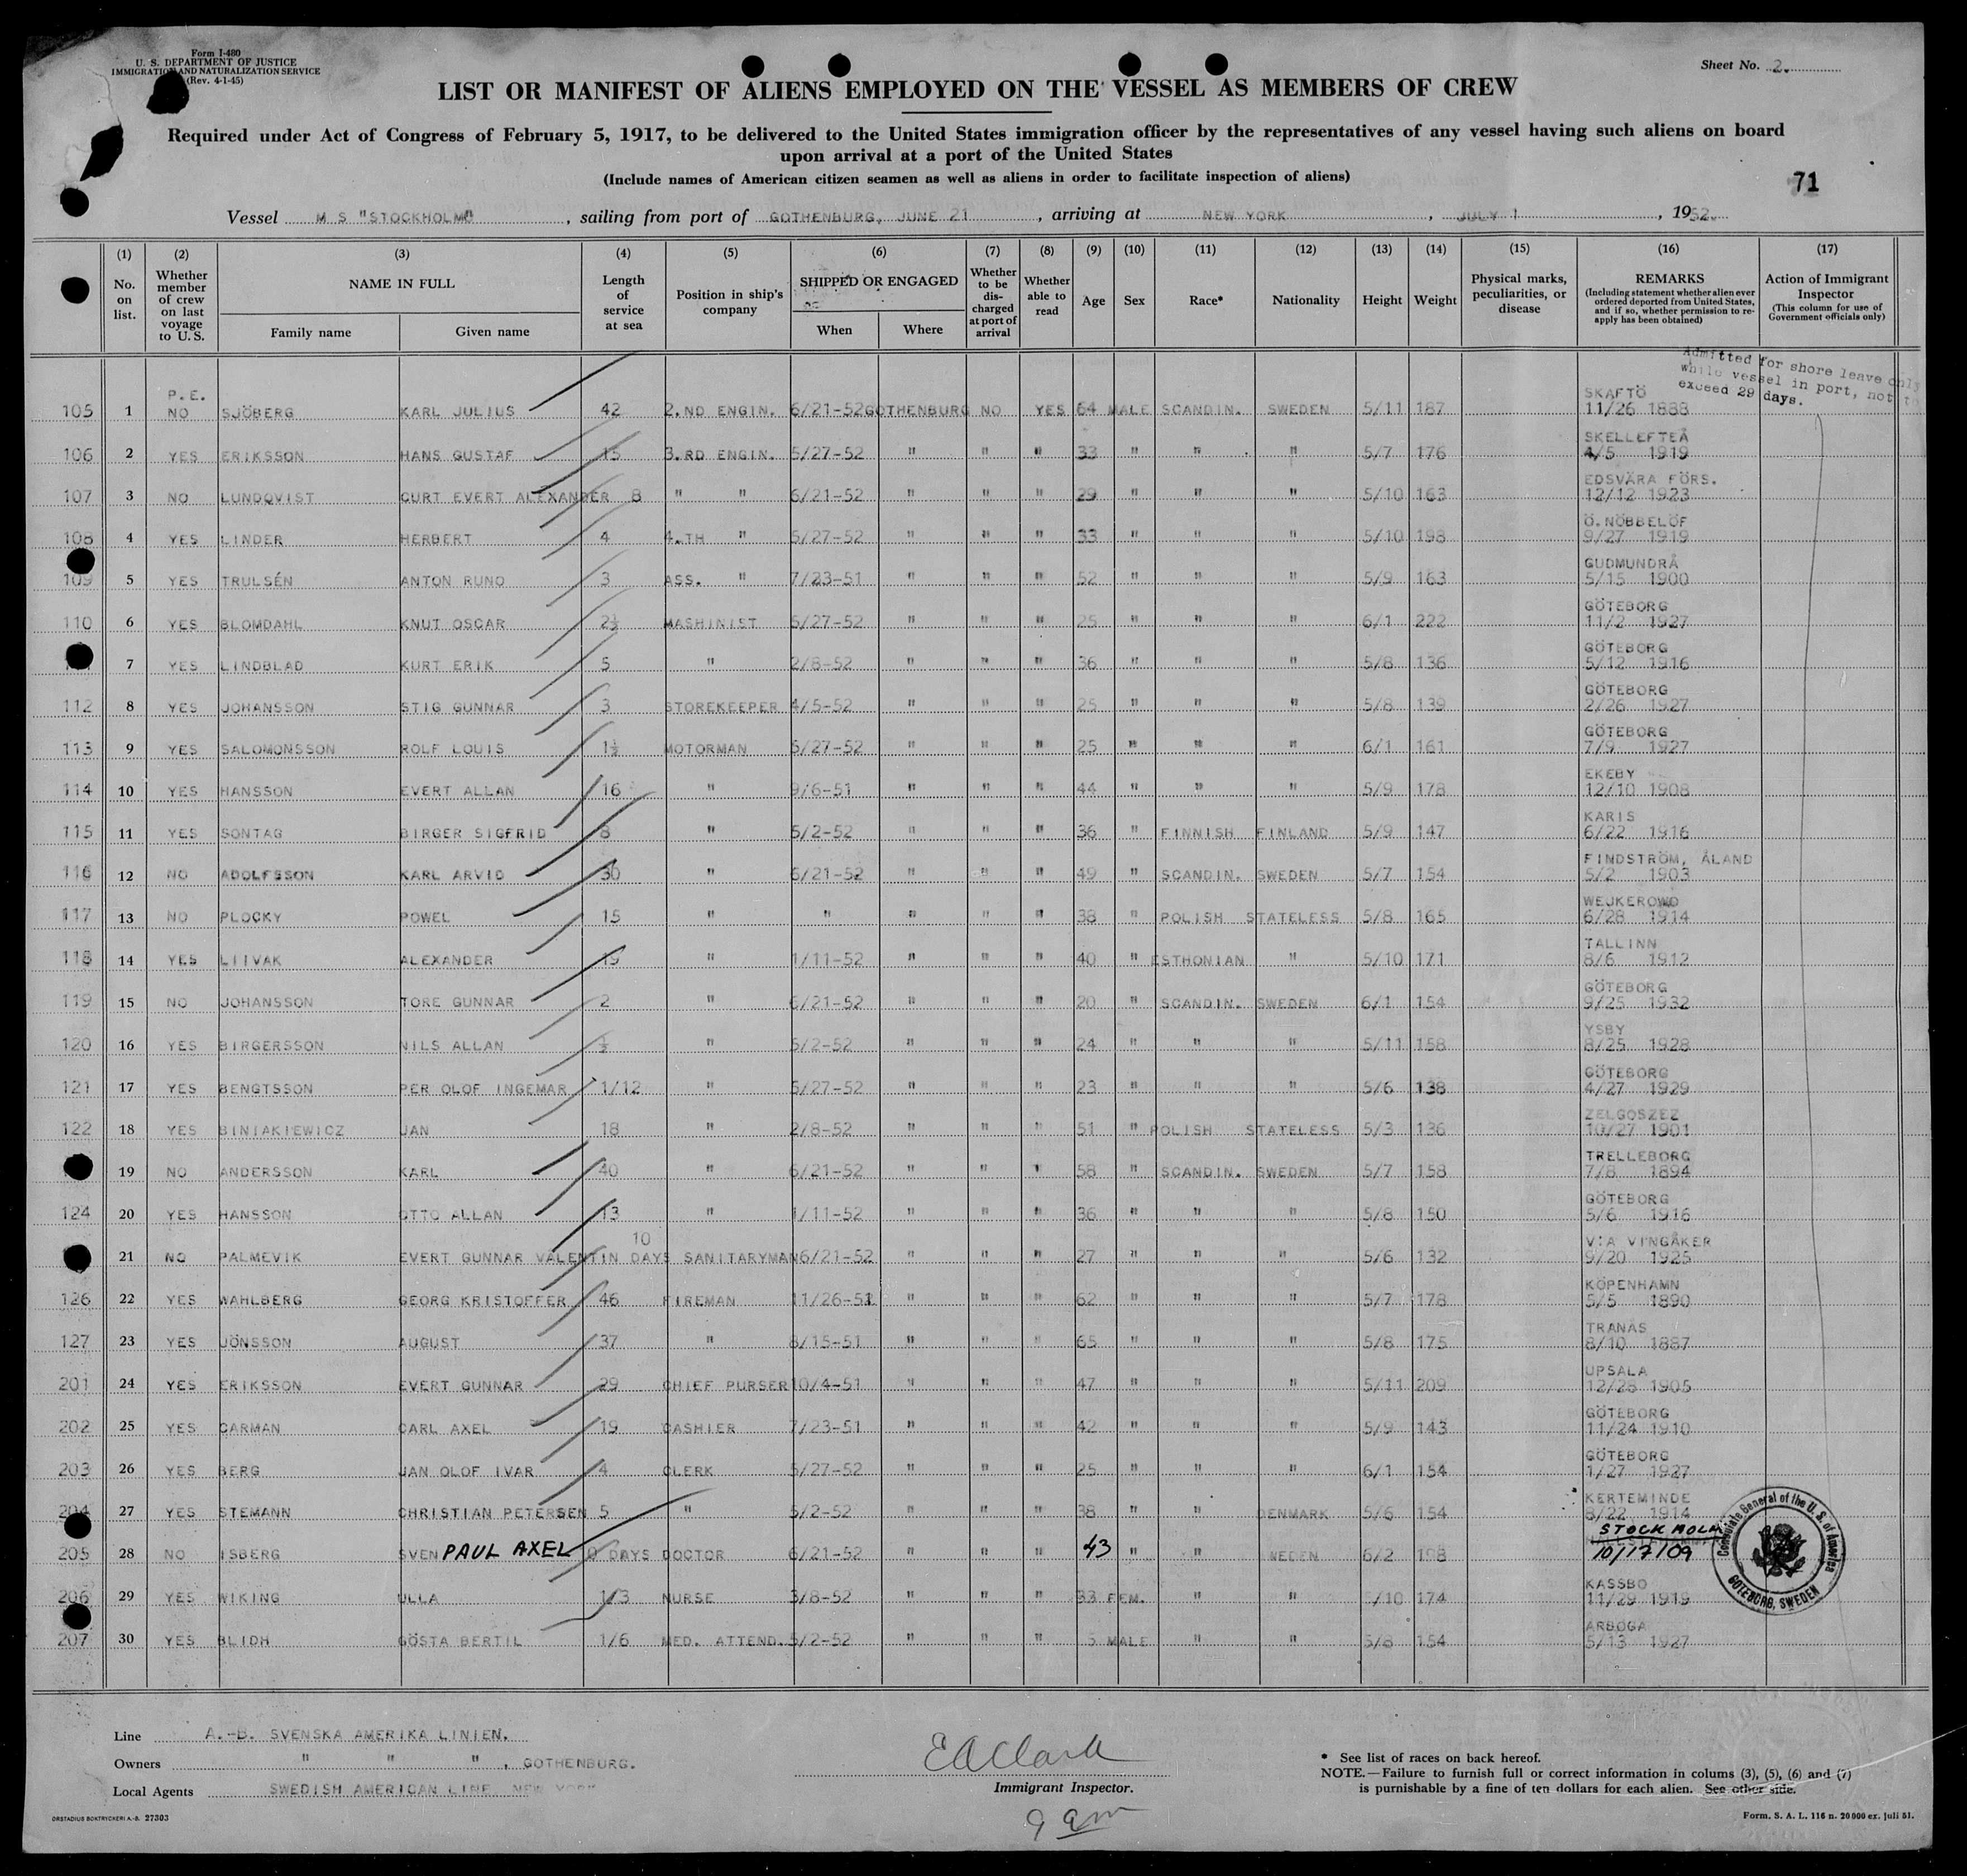 Form I-480
U. S. DEPARTMENT OF JUSTICE
IMMIGRATION AND NATURALIZATION SERVICE
(Rev. 4-1-45)
Sheet No. 2.
LIST OR MANIFEST OF ALIENS EMPLOYED ON THE VESSEL AS MEMBERS OF CREW
Required under Act of Congress of February 5, 1917, to be delivered to the United States immigration officer by the representatives of any vessel having such aliens on board
upon arrival at a port of the United States
(Include names of American citizen seamen as well as aliens in order to facilitate inspection of aliens)
71
Vessel M S "STOCKHOLM", sailing from port of GOTHENBURG, JUNE 21, arriving at NEW YORK, JULY 1, 1952.
(1) (2) (3) (4) (5) (6) (7) (8) (9) (10) (11) (12) (13) (14) (15) (16) (17)
No. on list.
Whether member of crew on last voyage to U. S.
NAME IN FULL
Family name
Given name
Length of service at sea
Position in ship's company
SHIPPED OR ENGAGED
When
Where
Whether to be discharged at port of arrival
Whether able to read
Age
Sex
Race*
Nationality
Height
Weight
Physical marks, peculiarities, or disease
REMARKS
(Including statement whether alien ever ordered deported from United States, and if so, whether permission to re-apply has been obtained)
Action of Immigrant Inspector
(This column for use of Government officials only)
Admitted for shore leave only
while vessel in port, not to
exceed 29 days.
P.E. SKAFTÖ
105 1 NO SJÖBERG KARL JULIUS 42 2.ND ENGIN. 6/21-52 GOTHENBURG NO YES 64 MALE SCANDIN. SWEDEN 5/11 187 11/26 1888
SKELLEFTEÅ
106 2 YES ERIKSSON HANS GUSTAF 15 3.RD ENGIN. 5/27-52 " " " 33 " " " 5/7 176 4/5 1919
EDSVÄRA FÖRS.
107 3 NO LUNDQVIST CURT EVERT ALEXANDER 8 " " 6/21-52 " " " 29 " " " 5/10 163 12/12 1923
Ö. NÖBBELÖF
108 4 YES LINDER HERBERT 4 4.TH " 5/27-52 " " " 33 " " " 5/10 198 9/27 1919
GUDMUNDRÅ
109 5 YES TRULSÉN ANTON RUNO 3 ASS. " 7/23-51 " " " 52 " " " 5/9 163 5/15 1900
GÖTEBORG
110 6 YES BLOMDAHL KNUT OSCAR 2½ MASHINIST 5/27-52 " " " 25 " " " 6/1 222 11/2 1927
GÖTEBORG
7 YES LINDBLAD KURT ERIK 5 " 2/8-52 " " " 36 " " " 5/8 136 5/12 1916
GÖTEBORG
112 8 YES JOHANSSON STIG GUNNAR 3 STOREKEEPER 4/5-52 " " " 25 " " " 5/8 139 2/26 1927
GÖTEBORG
113 9 YES SALOMONSSON ROLF LOUIS 1½ MOTORMAN 5/27-52 " " " 25 " " " 6/1 161 7/9 1927
EKEBY
114 10 YES HANSSON EVERT ALLAN 16 " 9/6-51 " " " 44 " " " 5/9 178 12/10 1908
KARIS
115 11 YES SONTAG BIRGER SIGFRID 8 " 5/2-52 " " " 36 " FINNISH FINLAND 5/9 147 6/22 1916
FINDSTRÖM, ÅLAND
116 12 NO ADOLFSSON KARL ARVID 30 " 6/21-52 " " " 49 " SCANDIN. SWEDEN 5/7 154 5/2 1903
WEJKEROWO
117 13 NO PLOCKY POWEL 15 " " " " " 38 " POLISH STATELESS 5/8 165 6/28 1914
TALLINN
118 14 YES LIIVAK ALEXANDER 19 " 1/11-52 " " " 40 " ESTHONIAN " 5/10 171 8/6 1912
GÖTEBORG
119 15 NO JOHANSSON TORE GUNNAR 2 " 6/21-52 " " " 20 " SCANDIN. SWEDEN 6/1 154 9/25 1932
YSBY
120 16 YES BIRGERSSON NILS ALLAN ½ " 5/2-52 " " " 24 " " " 5/11 158 8/25 1928
GÖTEBORG
121 17 YES BENGTSSON PER OLOF INGEMAR 1/12 " 5/27-52 " " " 23 " " " 5/6 138 4/27 1929
ZELGOSZEZ
122 18 YES BINIAKIEWICZ JAN 18 " 2/8-52 " " " 51 " POLISH STATELESS 5/3 136 10/27 1901
TRELLEBORG
19 NO ANDERSSON KARL 40 " 6/21-52 " " " 58 " SCANDIN. SWEDEN 5/7 158 7/8 1894
GÖTEBORG
124 20 YES HANSSON OTTO ALLAN 13 " 1/11-52 " " " 36 " " " 5/8 150 5/6 1916
10 V:A VINGÅKER
21 NO PALMEVIK EVERT GUNNAR VALENTIN DAYS SANITARYMAN 6/21-52 " " " 27 " " " 5/6 132 9/20 1925
KÖPENHAMN
126 22 YES WAHLBERG GEORG KRISTOFFER 46 FIREMAN 11/26-51 " " " 62 " " " 5/7 178 5/5 1890
TRANÅS
127 23 YES JÖNSSON AUGUST 37 " 8/15-51 " " " 65 " " " 5/8 175 8/10 1887
UPSALA
201 24 YES ERIKSSON EVERT GUNNAR 29 CHIEF PURSER 10/4-51 " " " 47 " " " 5/11 209 12/28 1905
GÖTEBORG
202 25 YES CARMAN CARL AXEL 19 CASHIER 7/23-51 " " " 42 " " " 5/9 143 11/24 1910
GÖTEBORG
203 26 YES BERG JAN OLOF IVAR 4 CLERK 5/27-52 " " " 25 " " " 6/1 154 1/27 1927
KERTEMINDE
204 27 YES STEMANN CHRISTIAN PETERSEN 5 " 5/2-52 " " " 38 " " DENMARK 5/6 154 8/22 1914
STOCKHOLM
205 28 NO ISBERG SVEN PAUL AXEL DAYS DOCTOR 6/21-52 " " " 43 " " 6/2 198 10/17/09
KASSBO
206 29 YES WIKING ULLA 1/3 NURSE 3/8-52 " " " 33 FEM. " " 5/10 174 11/29 1919
ARBOGA
207 30 YES BLIDH GÖSTA BERTIL 1/6 MED. ATTEND. 5/2-52 " " " 5 MALE " " 5/8 154 5/13 1927
Consulate General of the U. S. of America
GOTEBORG, SWEDEN
Line A.-B. SVENSKA AMERIKA LINIEN.
Owners " " " , GOTHENBURG.
Local Agents SWEDISH AMERICAN LINE, NEW YORK
E A Clark
Immigrant Inspector.
9 am
* See list of races on back hereof.
NOTE.—Failure to furnish full or correct information in colums (3), (5), (6) and (7)
is punishable by a fine of ten dollars for each alien. See other side.
ORSTADIUS BOKTRYCKERI A.-B. 27303
Form. S. A. L. 116 n. 20000 ex. juli 51.